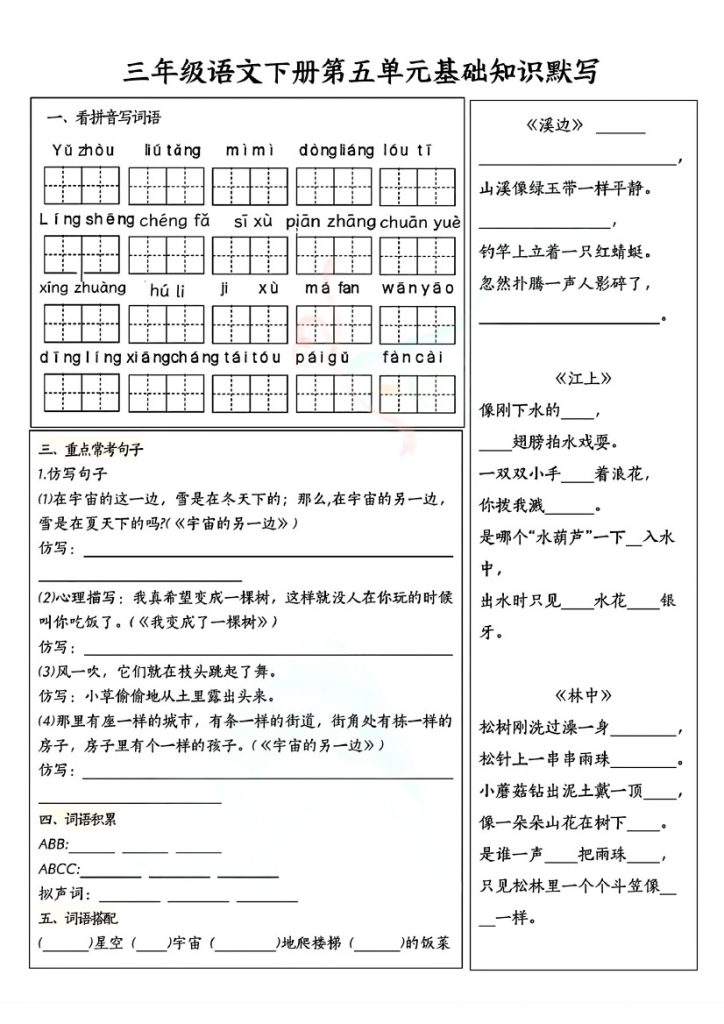 三年级语文下册第五单元基础知识默写
一、看拼音写词语
Yǔ zhòu liú tǎng mì mì dòng liáng lóu tī
Líng shēng chéng fǎ sī xù piān zhāng chuān yuè
xíng zhuàng hú li ji xù má fan wān yāo
dīng líng xiāng cháng tái tóu pái gǔ fàn cài
三、重点常考句子
1.仿写句子
(1)在宇宙的这一边，雪是在冬天下的；那么,在宇宙的另一边，
雪是在夏天下的吗?(《宇宙的另一边》)
仿写：
(2)心理描写：我真希望变成一棵树，这样就没人在你玩的时候
叫你吃饭了。(《我变成了一棵树》)
仿写：
(3)风一吹，它们就在枝头跳起了舞。
仿写：小草偷偷地从土里露出头来。
(4)那里有座一样的城市，有条一样的街道，街角处有栋一样的
房子，房子里有个一样的孩子。(《宇宙的另一边》)
仿写：
四、词语积累
ABB:______ ______ ______
ABCC:________ ________ ________
拟声词：________ ________ ________
五、词语搭配
(______)星空 (____)宇宙 (________)地爬楼梯 (______)的饭菜
《溪边》 ______
________________________，
山溪像绿玉带一样平静。
________________，
钓竿上立着一只红蜻蜓。
忽然扑腾一声人影碎了，
______________________。
《江上》
像刚下水的____，
____翅膀拍水戏耍。
一双双小手____着浪花，
你拨我溅______。
是哪个“水葫芦”一下__入水
中，
出水时只见____水花____银
牙。
《林中》
松树刚洗过澡一身________，
松针上一串串雨珠________。
小蘑菇钻出泥土戴一顶____，
像一朵朵山花在树下____。
是谁一声____把雨珠____，
只见松林里一个个斗笠像__
__一样。